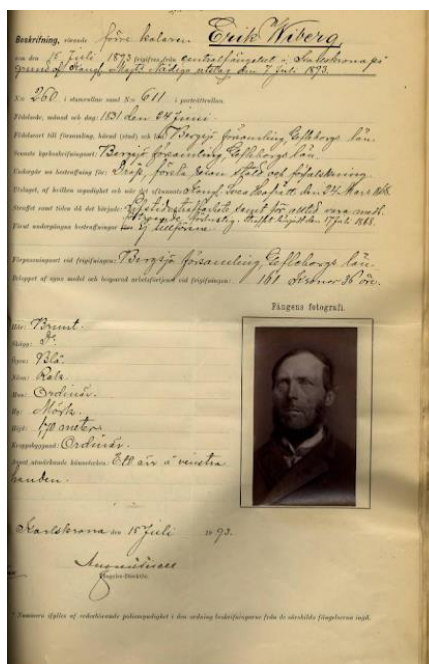 Beskrifning, rörande förre kolaren Erik Wiberg
som den 15 Juli 1893 frigifvits från centralfängelset i Karlskrona på
grund af Kongl. Majts nådiga utslag den 7 Juli 1893.
N:o 260. i stamrullen samt N:o 611 i porträttrullen.
Födelseår, månad och dag: 1831 den 24 Juni
Födelseort till församling, härad (stad) och län: Bergsjö församling, Gefleborgs län.
Senaste kyrkoskrifningsort: Bergsjö församling, Gefleborgs län.
Undergår nu bestraffning för: Dråp, första resan stöld och förfalskning
Utslaget, af hvilken myndighet och när det afkunnats: Kongl. Svea Hofrätt den 24 Mars 1868.
Straffet samt tiden då det börjat: Lifstidsstraffarbete samt för alltid vara medb.
förtroende förlustig. Straffet börjadt den 17 Juli 1868.
Förut undergångna bestraffningar
Försvarsort vid frigifningen: Bergsjö församling, Gefleborgs län.
Beloppet af egna medel och besparad arbetsförtjenst vid frigifningen: 161 Kronor 36 öre.
Fångens fotografi.
Hår: Brunt.
Skägg: D:o
Ögon: Blå.
Näsa: Rak.
Mun: Ordinär.
Hy: Mörk.
Höjd: 1,70 meter.
Kroppsbyggnad: Ordinär.
Annat utmärkande kännetecken: Ett ärr å venstra
handen.
Karlskrona den 15 Juli 1893.
Fängelse-Direktör.
* Numern ifylles af vederbörande polismyndighet i den ordning beskrifningarne från de särskilda fängelserna ingå.